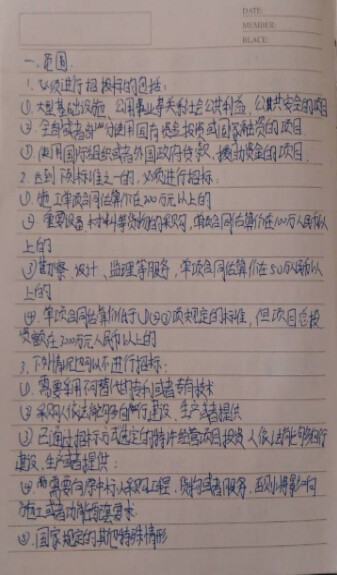 DATE:
MEMBER:
PLACE:
一、范围
1. 必须进行招投标的包括:
①、大型基础设施、公用事业等关系社会公共利益、公共安全的项目
②、全部或者部分使用国有资金投资或国家融资的项目
③、使用国际组织或者外国政府贷款、援助资金的项目
2. 达到下列标准之一的,必须进行招标:
①、施工单项合同估算价在200万元以上的
②、重要设备、材料等货物的采购,单项合同估算价在100万人民币以
上的
③勘察、设计、监理等服务,单项合同估算价在50万人民币以
上的
④、单项合同估算价低于①②③项规定的标准,但项目总投
资额在3000万元人民币以上的
3. 下列情况可以不进行招标:
①、需要采用不可替代的专利或者专有技术
②、采购人依法能够自行建设、生产或者提供
③、已通过招标方式选定的特许经营项目投资人依法能够自行
建设、生产或者提供;
④、需要向原中标人采购工程、货物或者服务,否则将影响
施工或者功能配套要求
⑤、国家规定的其他特殊情形